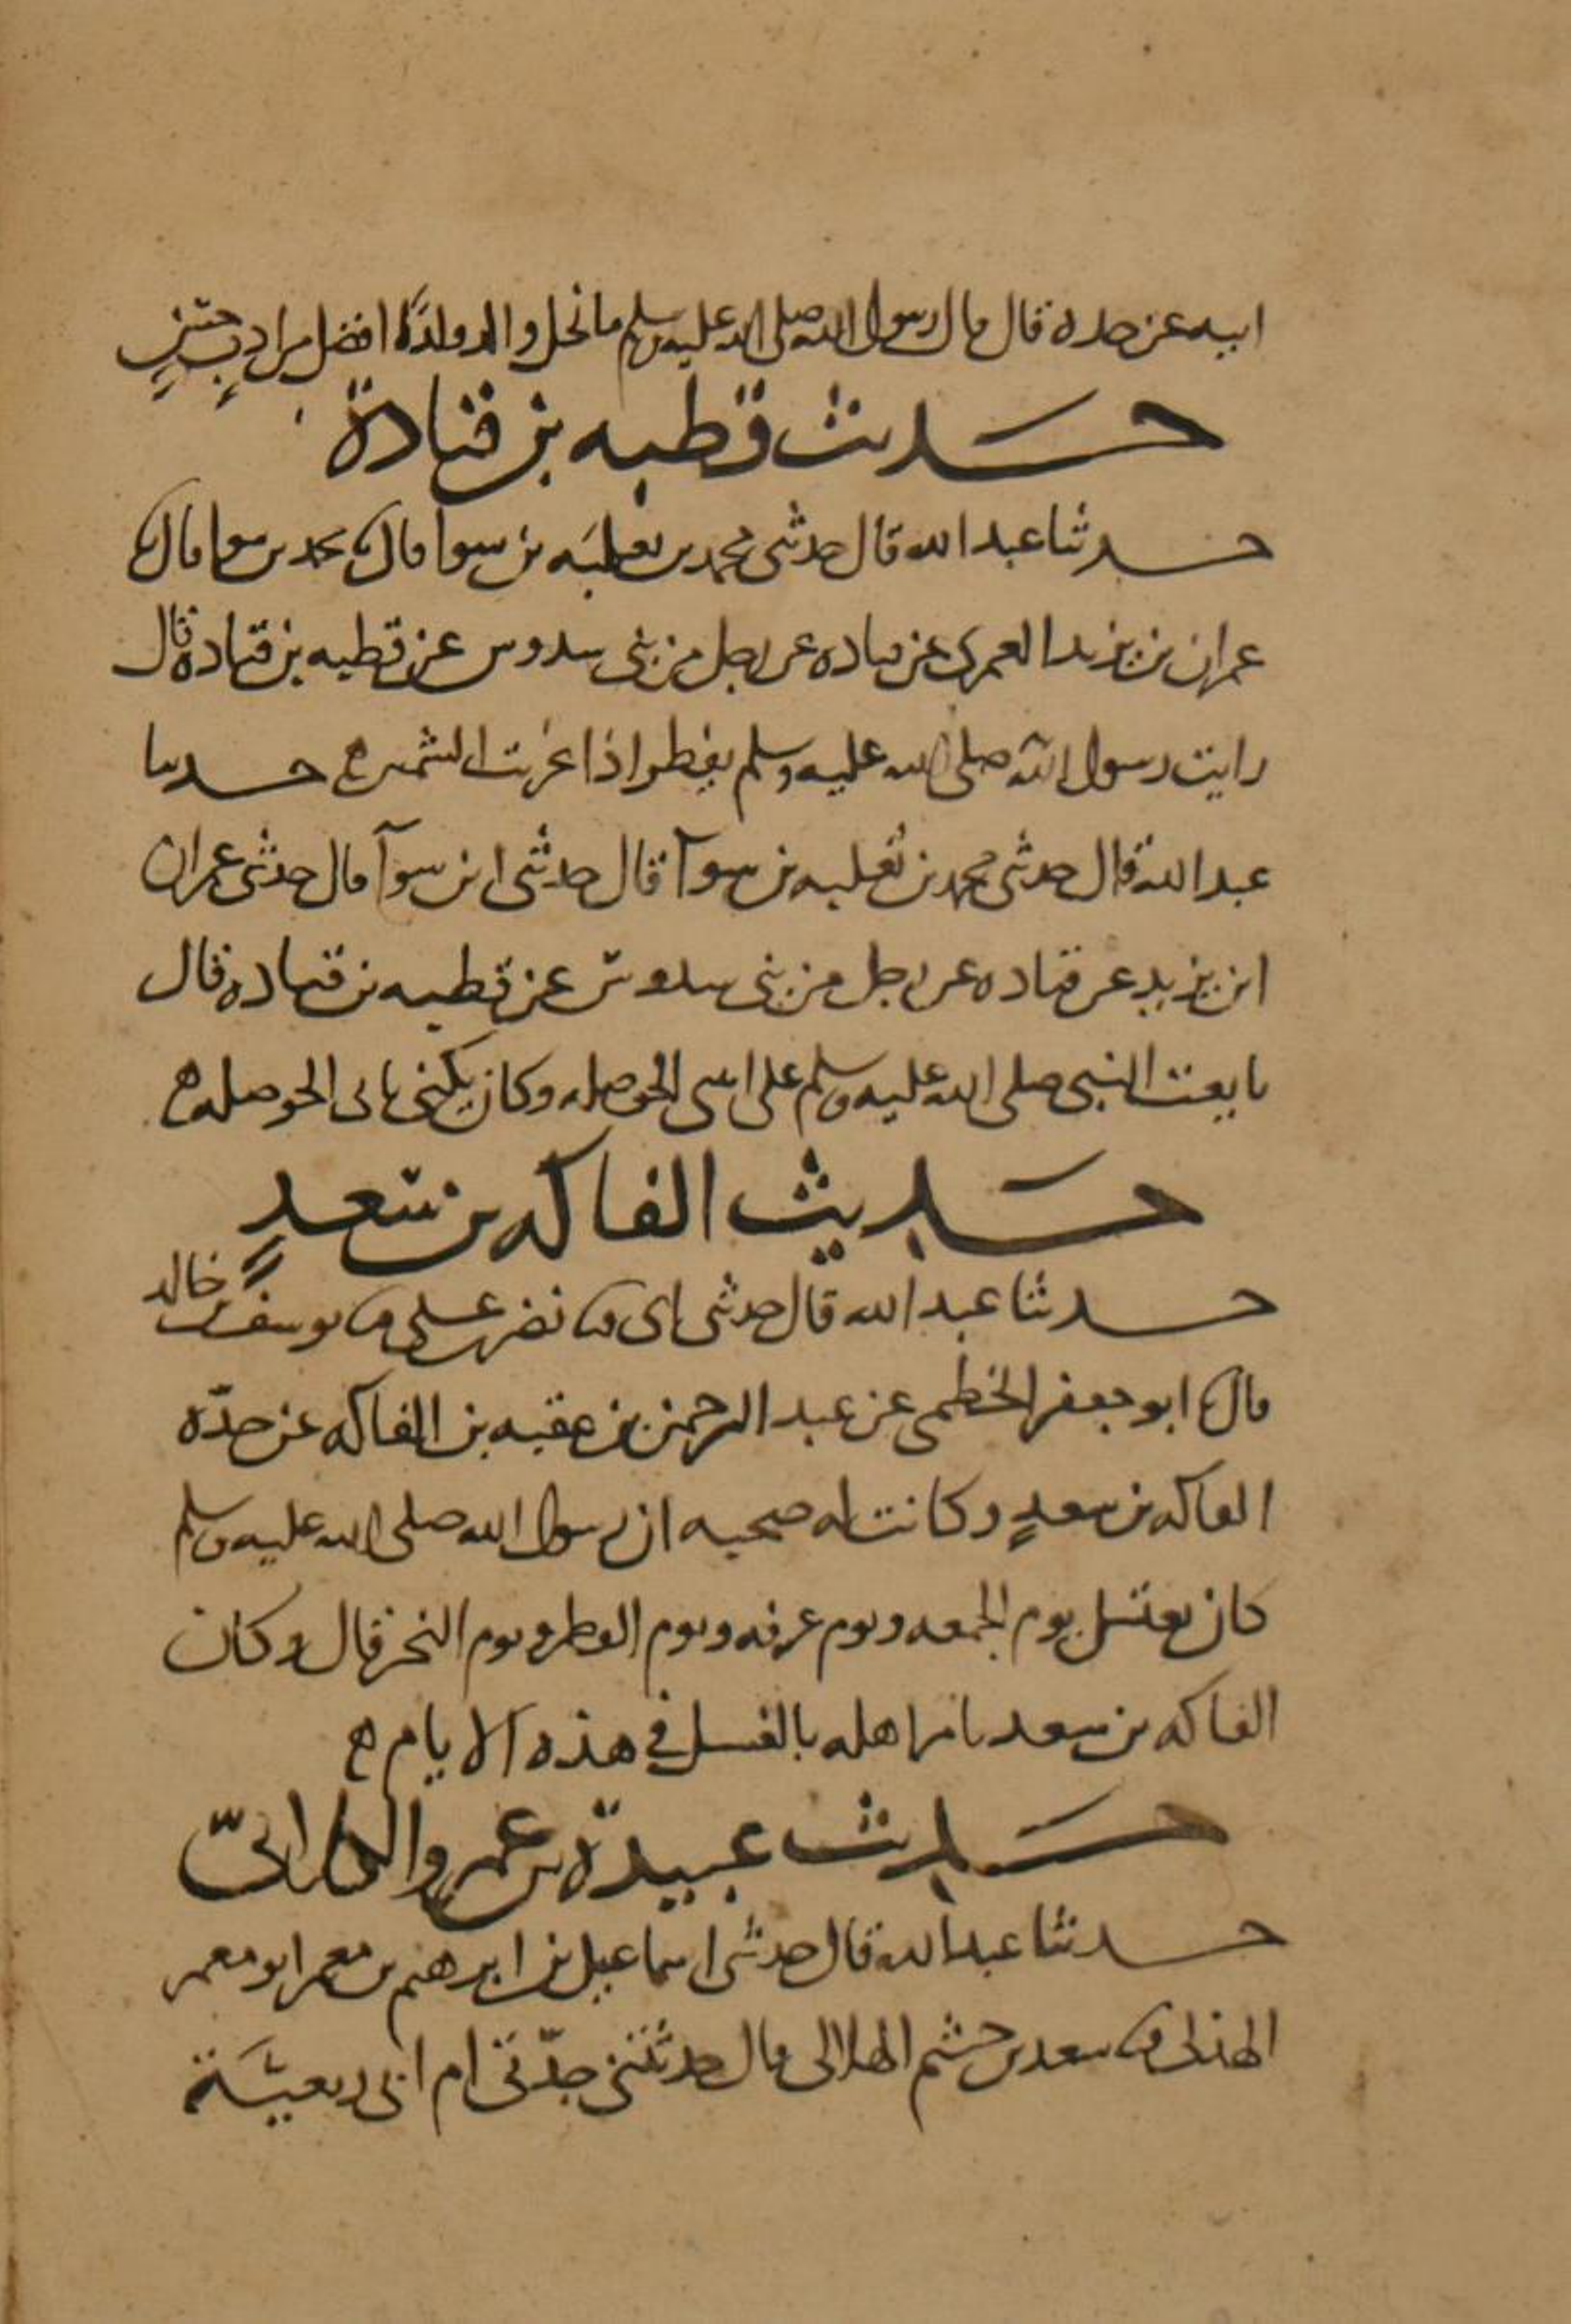 ابيه عن جده قال قال رسول الله صلى الله عليه وسلم ما نحل والد ولدًا افضل من ادبٍ حسنٍ
حديث قطبه بن قتادة
حدثنا عبد الله قال حدثني محمد بن ثعلبه بن سوا قال نا محمد بن سوا قال نا
عمران بن يزيد العمرى عن قتاده عن رجل من بني سدوس عن قطبه بن قتاده قال
رايت رسول الله صلى الله عليه وسلم يفطر اذا غربت الشمس ه حدثنا
عبد الله قال حدثني محمد بن ثعلبه بن سوآ قال حدثني ابن سوآ قال حدثني عمران
ابن يزيد عن قتاده عن رجل من بني سدوس عن قطبه بن قتاده قال
بايعت النبي صلى الله عليه وسلم على ابنتي الحوصله وكان يكنى بابي الحوصله ه
حديث الفاكه بن سعدٍ
حدثنا عبد الله قال حدثني ابي نا نصر بن علي نا يوسف بن خالد
قال نا ابو جعفر الخطمي عن عبد الرحمن بن عقبه بن الفاكه عن جدّه
الفاكه بن سعدٍ وكانت له صحبه ان رسول الله صلى الله عليه وسلم
كان يغتسل يوم الجمعه ويوم عرفه ويوم الفطر ويوم النحر قال وكان
الفاكه بن سعد يامر اهله بالغسل في هذه الايام ه
حديث عبيدة بن عمرو الكلابيّ
حدثنا عبد الله قال حدثني اسماعيل بن ابرهيم بن معمر ابو معمر
الهذلي نا سعيد بن خثيم الهلالي قال حدثتني جدّتي ام ابي ربعيَّة